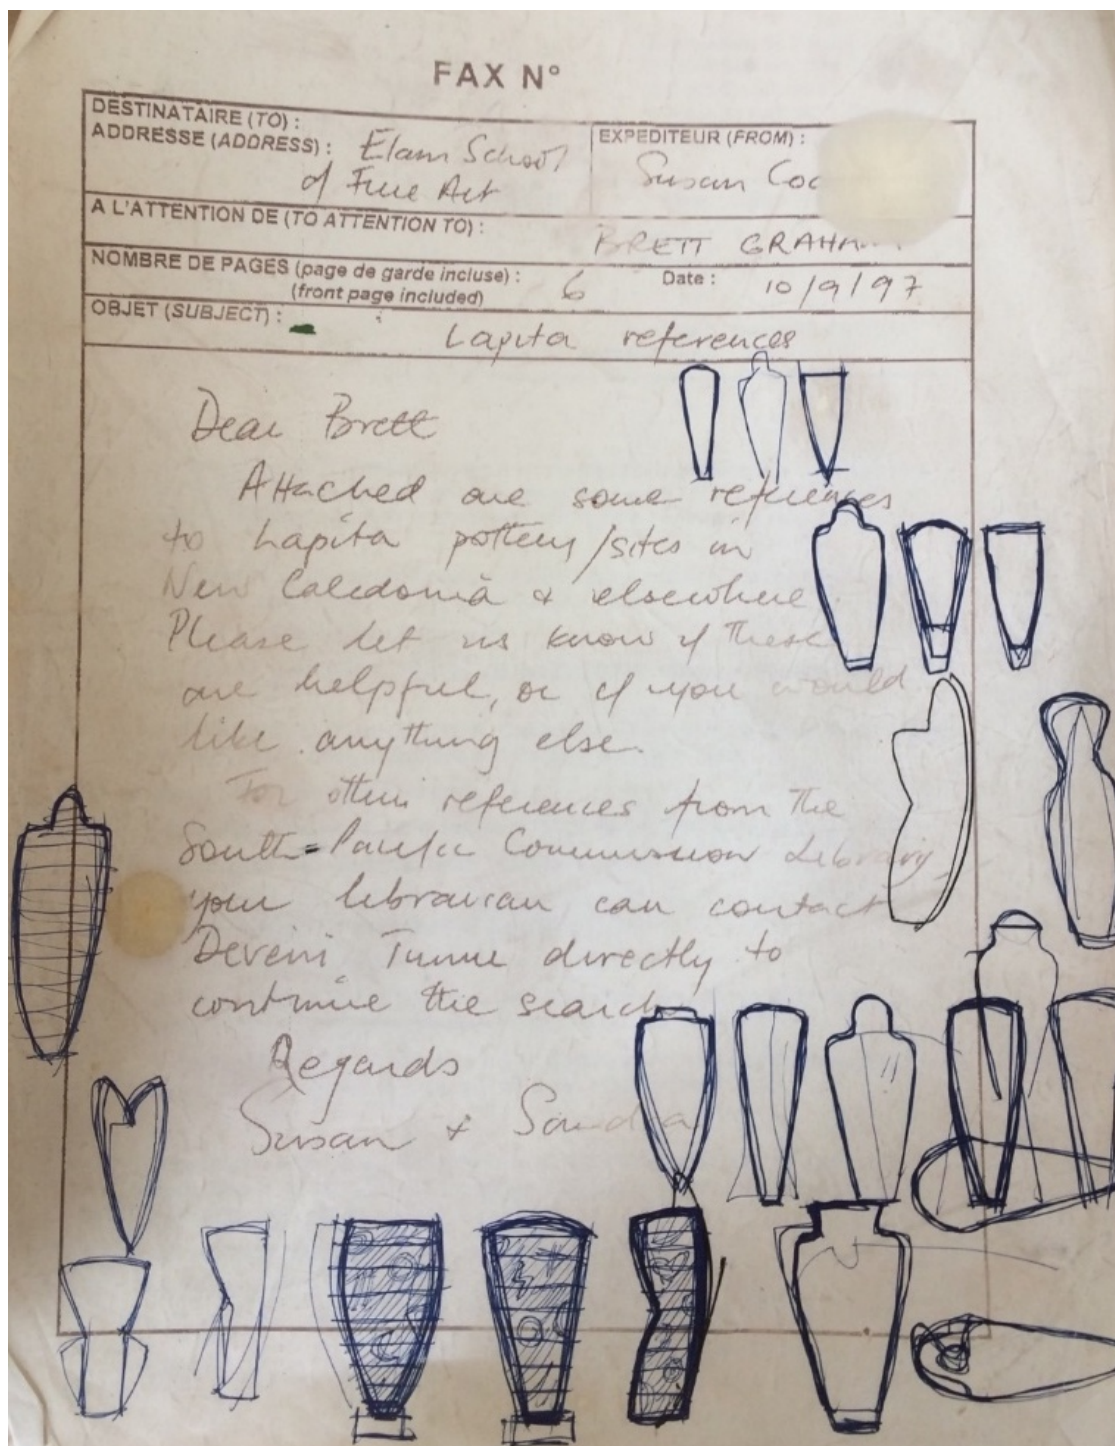 FAX N°
DESTINATAIRE (TO) :
ADDRESSE (ADDRESS) : Elam School
of Fine Art
EXPEDITEUR (FROM) :
Susan Coc
A L'ATTENTION DE (TO ATTENTION TO) :
BRETT GRAHAM
NOMBRE DE PAGES (page de garde incluse) :
(front page included) 6
Date : 10/9/97
OBJET (SUBJECT) :
Lapita references
Dear Brett
Attached are some references
to Lapita pottery/sites in
New Caledonia & elsewhere
Please let us know if these
are helpful, or if you would
like anything else.
For other references from the
South-Pacific Commission Library,
your librarian can contact
Deveni Temu directly to
continue the search
Regards
Susan + Sandra